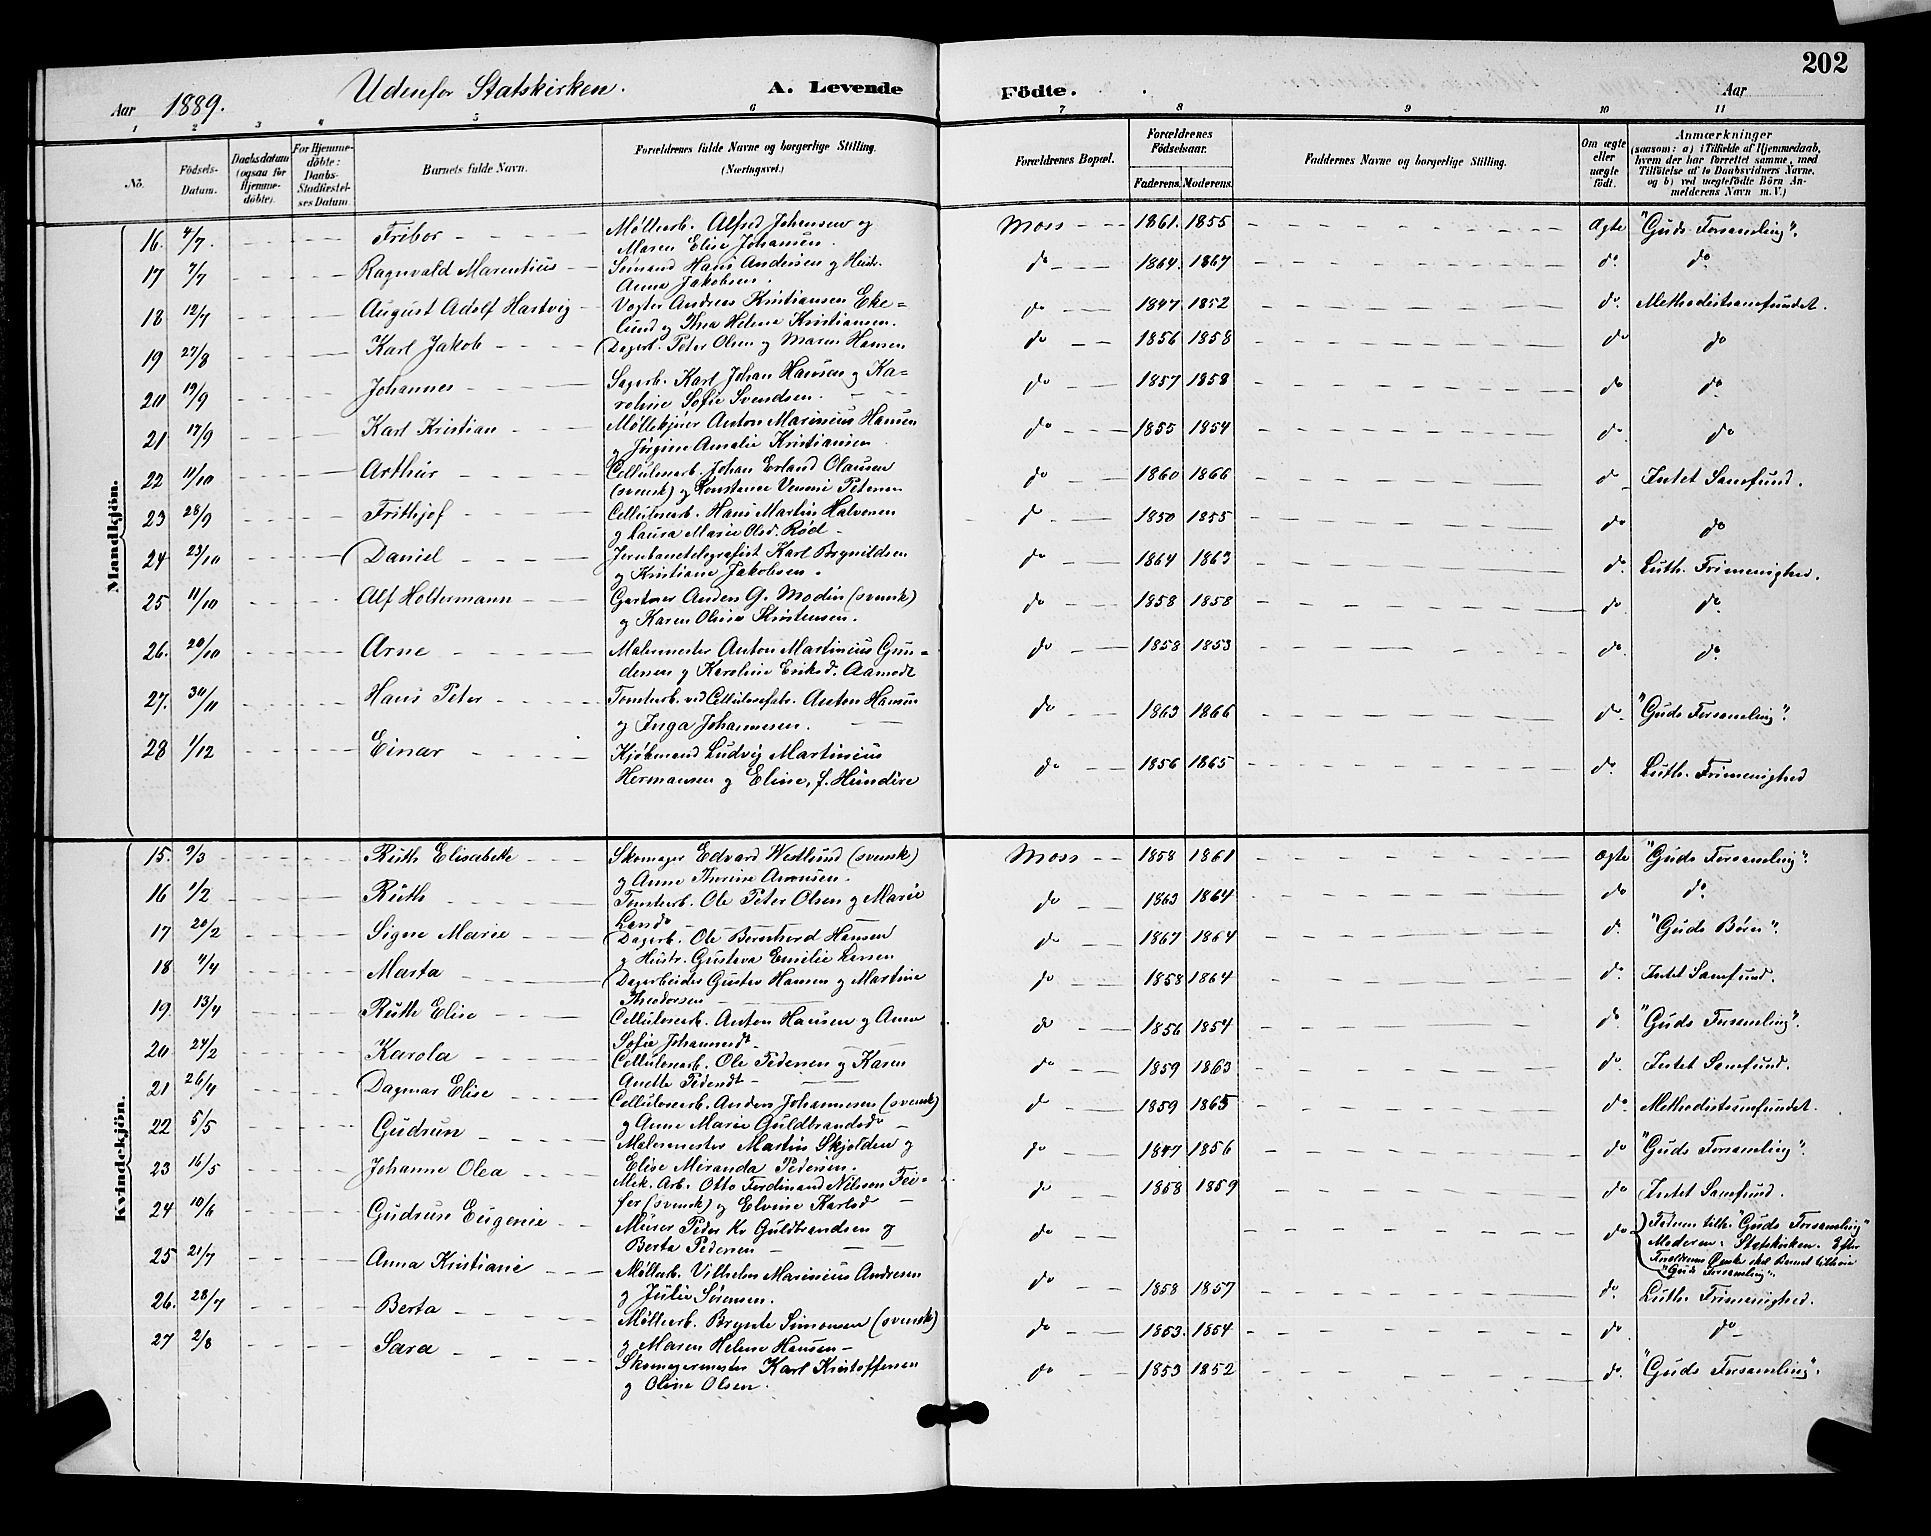 202
Aar 1889. Udenfor Statskirken. A. Levende Födte. Aar
1 2 3 4 5 6 7 8 9 10 11
No. Födsels-Datum. Daabsdatum (ogsaa for Hjemme-döbte). For Hjemme-döbte: Daabs-Stadfæstel-ses Datum. Barnets fulde Navn. Forældrenes fulde Navne og borgerlige Stilling. (Næringsvei.) Forældrenes Bopæl. Forældrenes Födselsaar. Faderens. Moderens. Faddernes Navne og borgerlige Stilling. Om ægte eller uægte födt. Anmærkninger (saasom: a) i Tilfælde af Hjemmedaab, hvem der har forrettet samme, med Tilföielse af to Daabsvidners Navne, og b) ved uægtefödte Börn An-melderens Navn m. V.)
Mandkjön.
16. 4/7. Fribor Møllearb. Alfred Johensen og Moss 1861. 1855 Ægte "Guds Forsamling".
Maren Elise Johansen.
17 7/7 Ragnvald Marentius Sømand Hans Andersen og Hustr. do 1864. 1867 do. do.
Anna Jakobsen.
18 12/7 August Adolf Hartvig Vogter Andreas Kristiansen Eke= do 1847 1852 do. Methodistsamfundet.
lund og Thea Helene Kristiansen.
19 27/8 Karl Jakob Dagarb. Peter Olsen og Maren Hansen do 1856 1858 do do
20 19/9 Johannes Sagarb. Karl Johan Hansen og Ka= do 1857 1858 do do.
roline Sofie Svendsen.
21 17/9 Karl Kristian Møllekjører Anton Marinius Hansen do 1855 1854 do. do
og Jørgine Amalie Kristiansen
22 11/10 Arthur Cellulosearb. Johan Erland Olausen do 1860 1866 do Intet Samfund.
(svensk) og Konstance Petersen
23 28/9 Frithjof Cellulosearb. Hans Martin Halvorsen do 1850 1855 do do
og Laura Marie Olsd. Rød
24 23/10 Daniel Jernbanetelegrafist Karl Brynildsen do 1864 1863 do. Luth. Frimenighed.
og Kristiane Jakobsen.
25 11/10 Alf Holtermann Gartner Anders G. Modin (svensk) do 1858 1858 do. do.
og Karen Oline Kristensen.
26. 20/10 Arne Malermester Anton Martinius Gun= do 1858 1853 do. do.
dersen og Karoline Eriksd. Aamodt
27. 30/11 Hans Peter Tomtearb. ved Cellulosefabr. Anton Hansen do 1863 1866 do. "Guds Forsamling".
og Inga Johannesen.
28 1/12 Einar Kjøbmand Ludvig Martinius do 1856 1865 do. Luth. Frimenighed
Hermansen og Eline, f. Hundire
Kvindekjön.
15. 9/3 Ruth Elisabeth Skomager Edvard Westlund (svensk) Moss 1858 1861 Ægte "Guds Forsamling".
og Anne Therine Aronsen.
16 1/2 Ruth Tomtearb. Ole Peter Olsen og Marie do 1863 1864 do do.
Lande
17 20/2 Signe Marie Dagarb. Ole Bernhard Hansen do 1867 1864 do. "Guds Børn".
og Hustr. Gustava Emilie Larsen
18 4/4 Marta Dagarbeider Gustav Hansen og Martine do 1858 1864 do. Intet Samfund.
Theodorsen
19. 13/4 Ruth Elise Cellulosearb. Anton Hansen og Anne do 1856 1854 do. "Guds Forsamling".
Sofie Johannesdt
20 24/2 Karola Cellulosearb. Ole Pedersen og Karen do 1859 1863 do. Intet Samfund.
Anette Pedersdt
21 26/4 Dagmar Elise Cellulosearb. Anders Johannesen (svensk) do 1859 1865 do. Methodistsamfundet.
og Anne Marie Guldbrandsd.
22 5/5 Gudrun Malermester Martin Skjolden og do 1847 1856 do "Guds Forsamling".
Elise Miranda Pedersen.
23 16/5 Johanne Olea Mek. Arb. Otto Ferdinand Nilsen Fei= do 1858 1859 do Intet Samfund.
fer (svensk) og Elvine Karlsd.
24 10/6 Gudrun Eugenie Murer Peder Kr Guldbrandsen og do do Faderen tilh. "Guds Forsamling"
Berta Pedersen Moderen: Statskirken. Efter
Forældrenes Ønske skal Barnet tilhøre
"Guds Forsamling".
25 21/7 Anna Kristiane Møllearb. Vilhelm Marinius Andresen do 1858 1857 do. Luth. Frimenighed.
og Julie Sørensen.
26. 28/7 Berta Møllearb. Brynte Simonsen (svensk) do 1853. 1854 do do
og Maren Helene Hansen
27 2/8 Sara Skomagermester Karl Kristoffersen do 1853 1852 do. "Guds Forsamling".
og Oline Olsen.